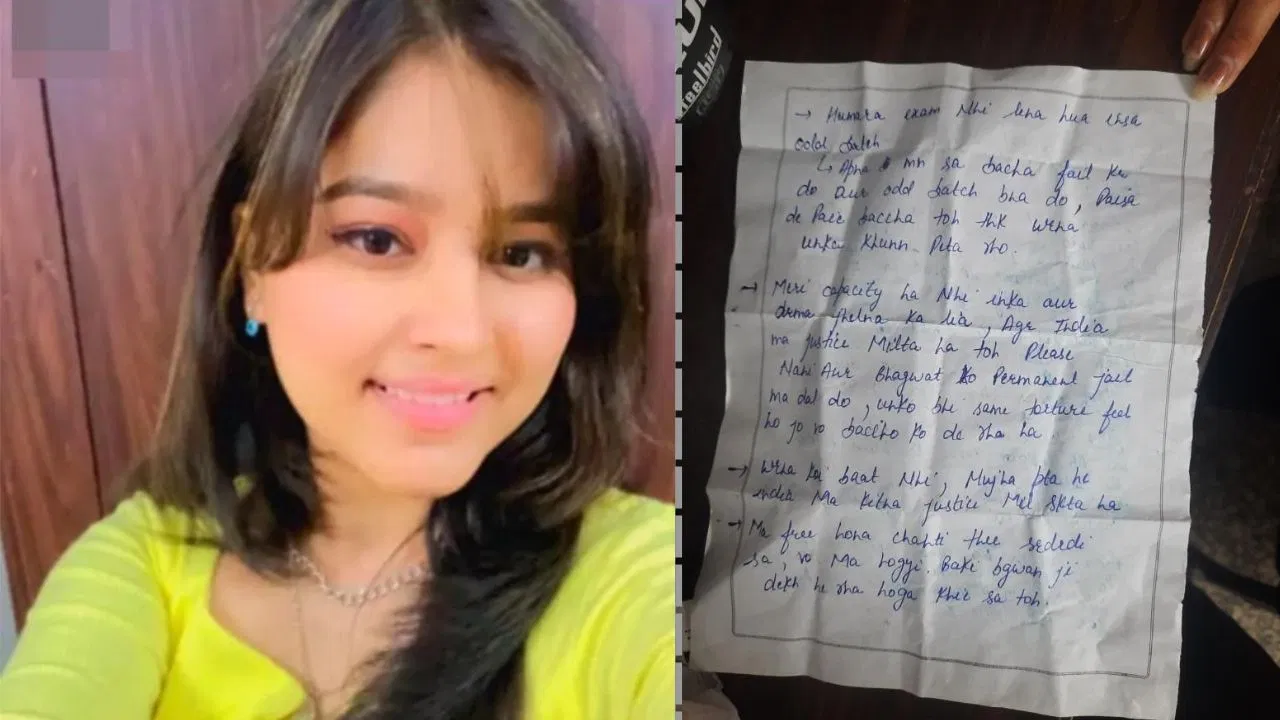 eelbird
→ Humara exam Nhi lena hua insa
odd batch
↳ Apna mn sa bacha fail kr
do aur odd batch bna do, Paisa
de Paie baccha toh thk wrna
unka Khunn Pita rho.
→ Meri capacity ha Nhi inka aur
drma jhelna ka lia, Agr India
ma justice Milta ha toh Please
Nahi Aur Bhagwat ko Permanent jail
ma dal do, unko bhi same torture feel
ho jo vo baccho ko de rha ha.
→ Wrna koi baat Nhi, Mujha pta he
india Ma kitna justice Mil skta ha
→ Ma free hona chahti thee sededi
sa, vo Ma hogyi. Baki bgwan ji
dekh he rha hoga kher sa toh.